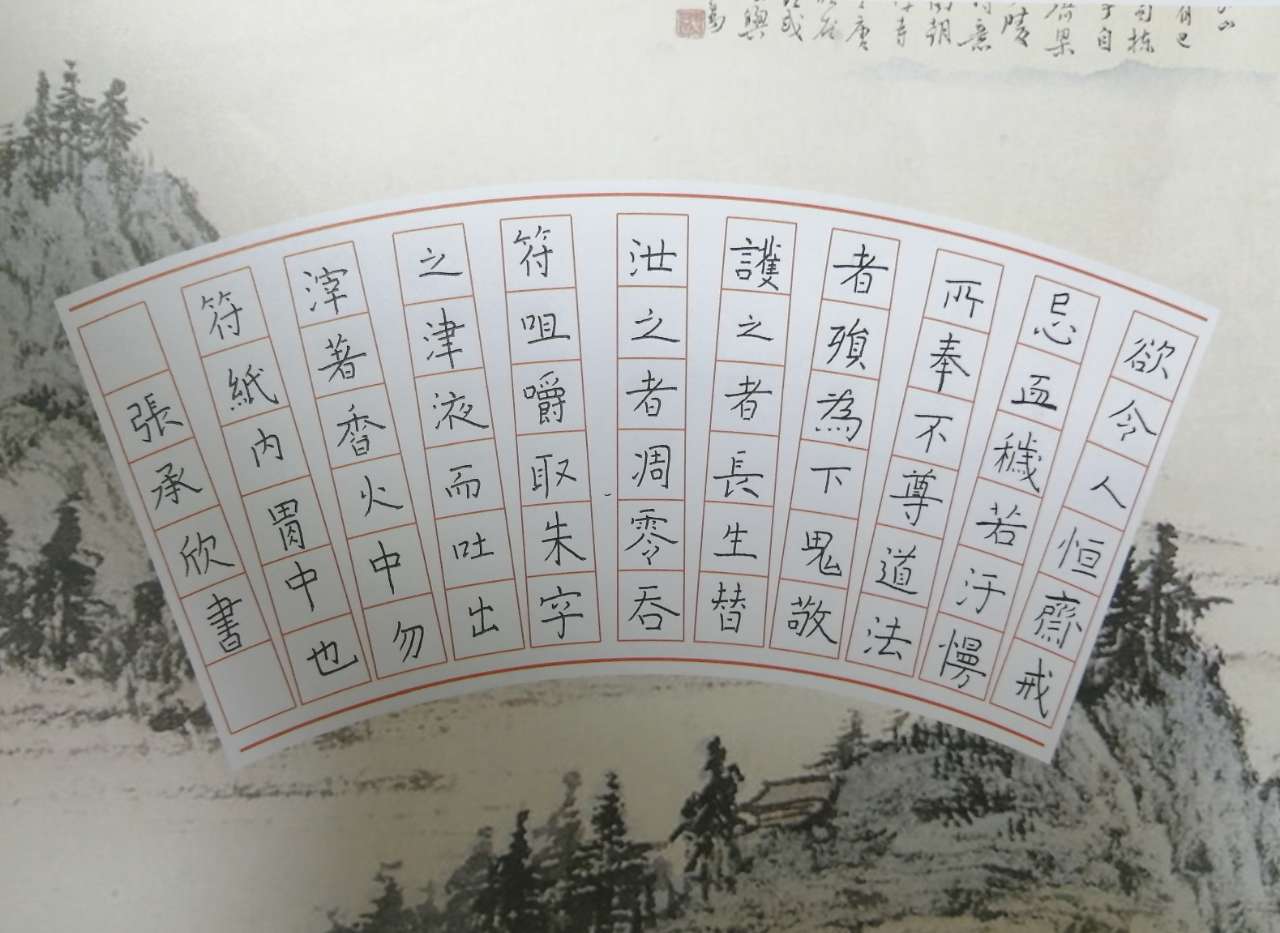 欲令人恒齋戒
忌血穢若汙慢
所奉不尊道法
者殞為下鬼敬
護之者長生替
泄之者凋零吞
符咀嚼取朱字
之津液而吐出
滓著香火中勿
符紙內胃中也
張承欣書